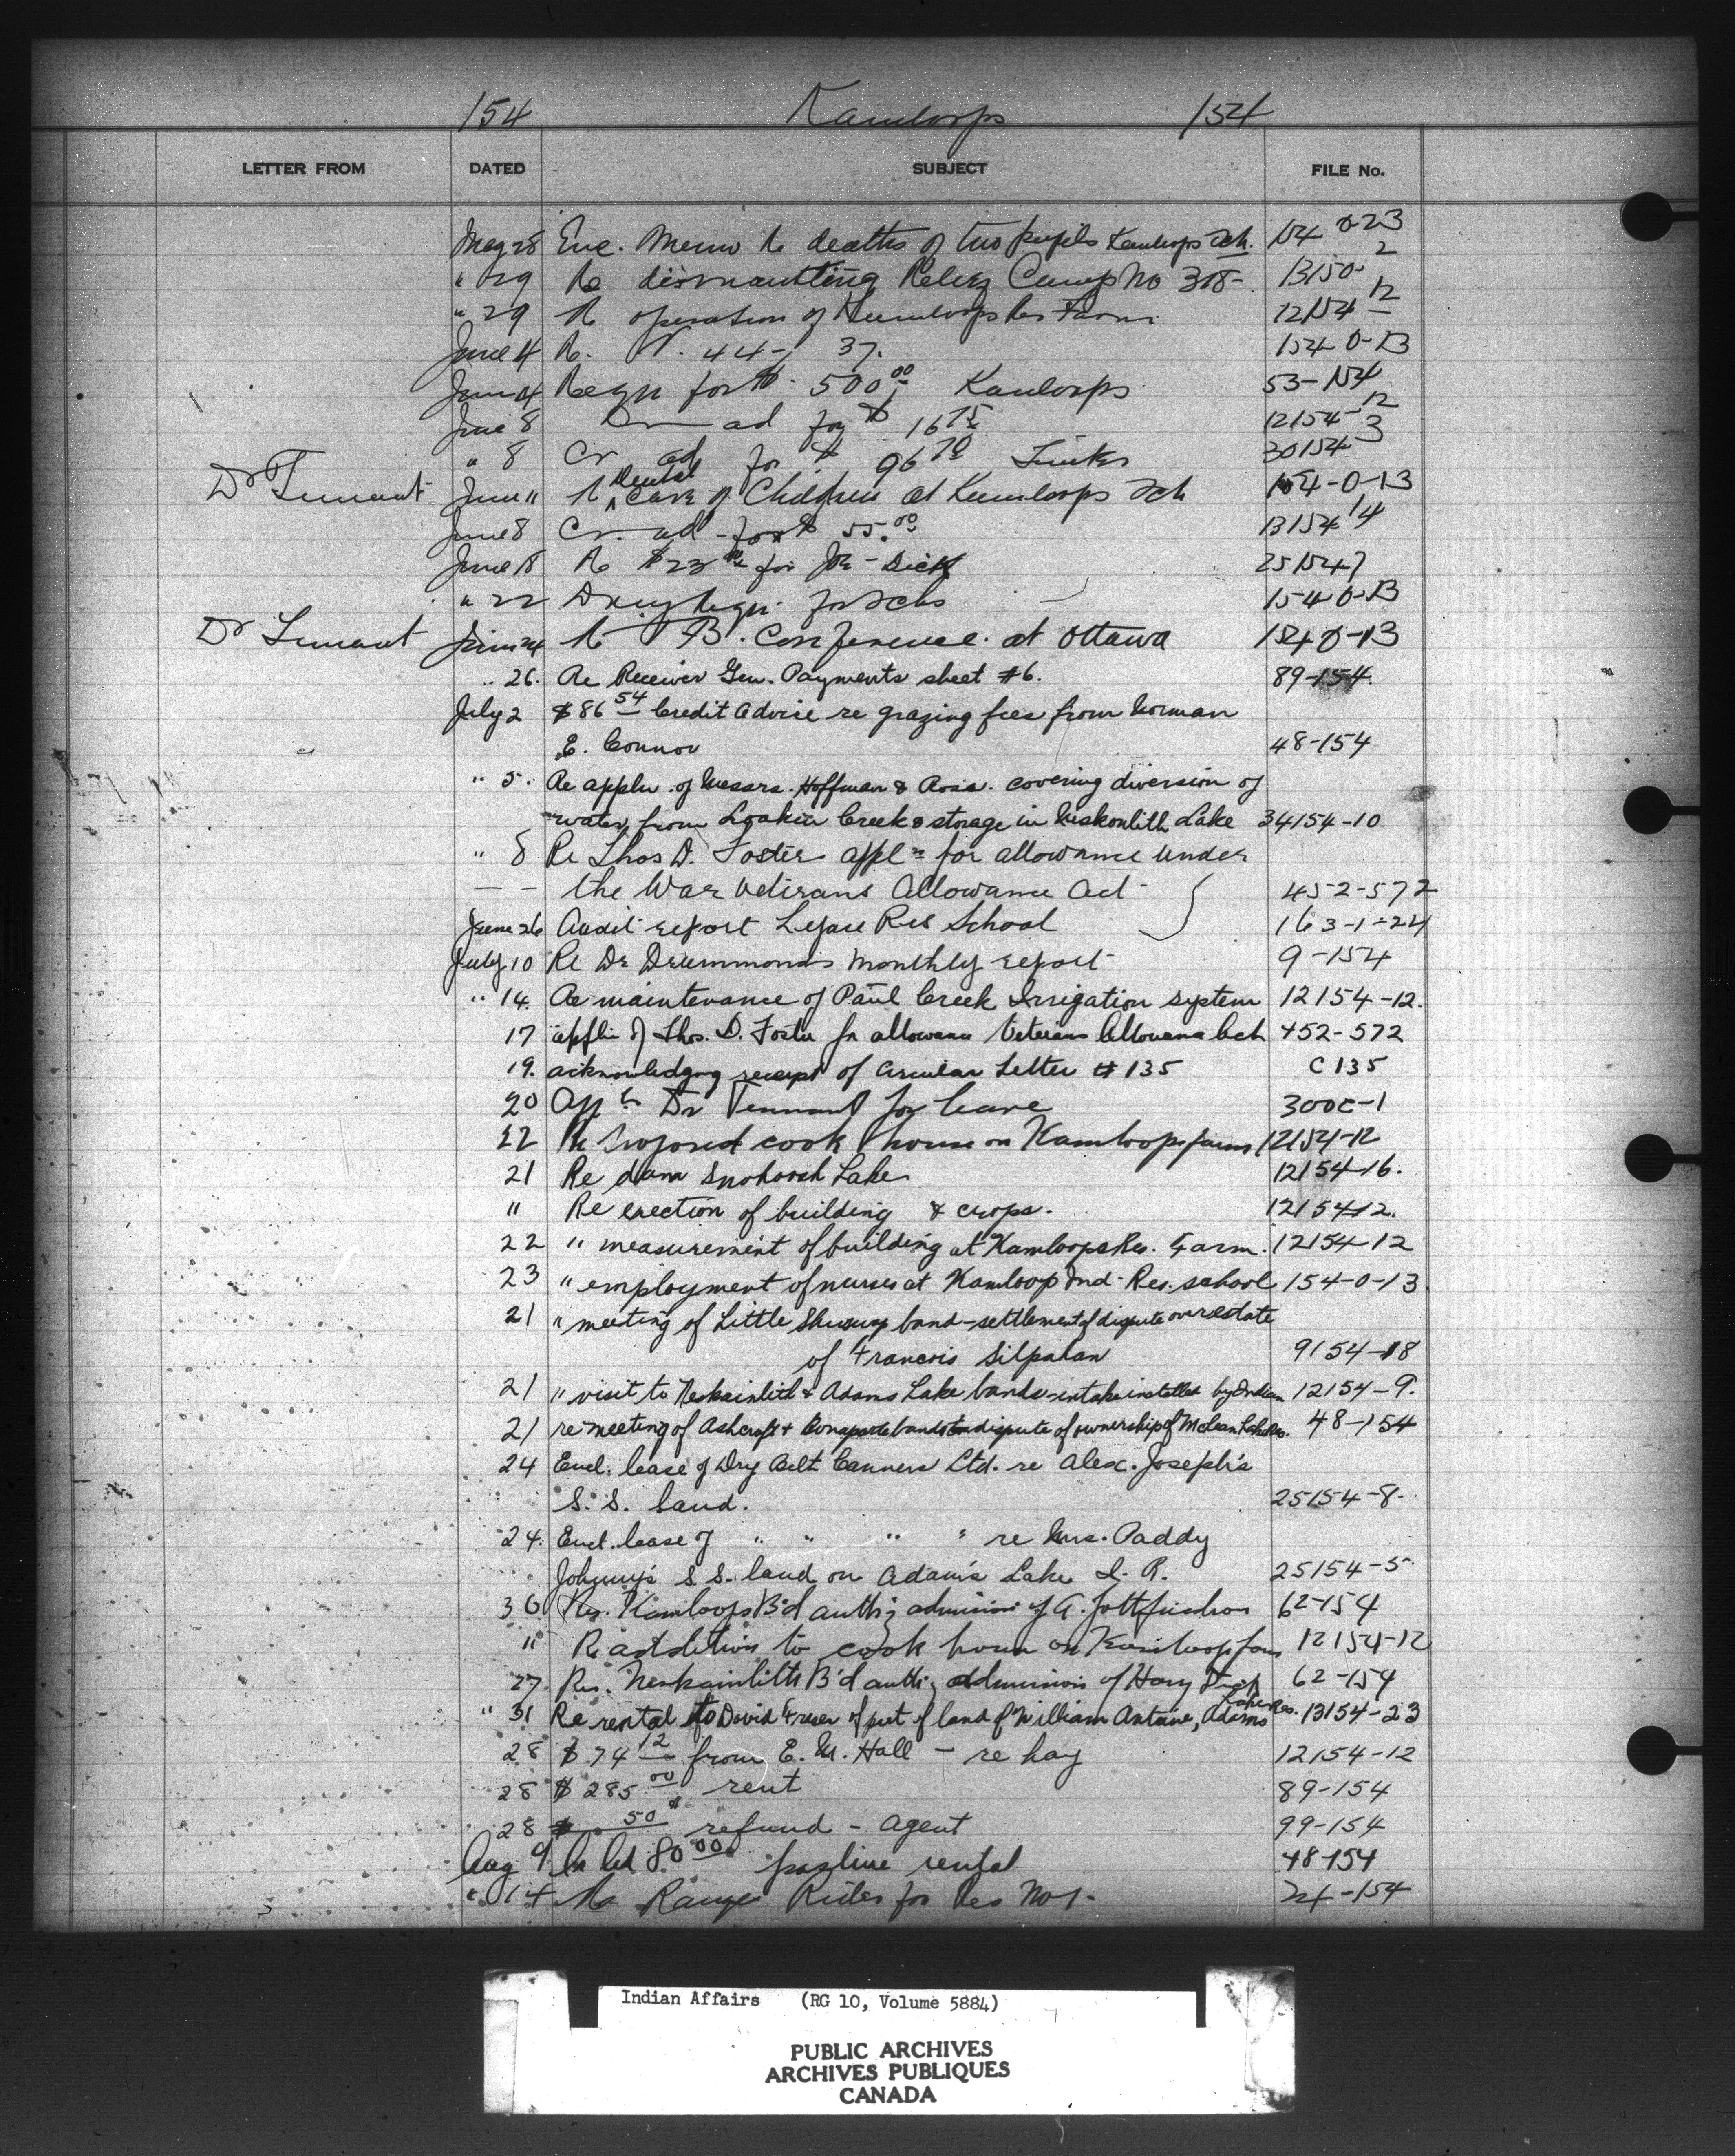 154 Kamloops 154
LETTER FROM DATED SUBJECT FILE No.
May 28 Enc. Memo re deaths of two pupils Kamloops Sch. 154-0-23
" 29 Re dismantling Relief Camp No 318- 13150-2
" 29 Re operation of Kamloops Res Farm 12154-12
June 4 Re. V. 44-37. 154-0-13
June 4 Reqn for $500.00 Kamloops 53-154
June 8 ad for $16 75 12154-12
" 8 Cr ad for $96 70 30154-3
Dr Tennant June 11 Re Dental Care of Children at Kamloops Sch 154-0-13
June 8 Cr. ad - for $55.00 13154-14
June 18 Re $23 for Joe - Dick 25154-7
" 22 Drug Reqn. for Schs 154-0-13
Dr Tennant June 24 Re T B. Conference at Ottawa 154-0-13
" 26. Re Receiver Gen. Payments sheet #6. 89-154.
July 2 $86 54 Credit Advice re grazing fees from Norman
E. Connor 48-154
" 5. Re appln. of Messrs. Hoffman & Ross. covering diversion of
water from Loakin Creek & storage in Niskonlith Lake 34154-10
" 8 Re Thos D. Foster appln for allowance under
— — the War Veterans Allowance Act - 452-572
June 26 Audit report Lejac Res School 163-1-24
July 10 Re Dr Drummonds monthly report 9-154
" 14. Re maintenance of Paul Creek Irrigation system 12154-12.
17 appln of Thos. D. Foster for allowance Veterans Allowance Act 452-572
19. acknowledging receipt of Circular Letter #135 C 135
20 App Dr Tennant for leave 300C-1
22 Re Proposed cook house on Kamloops farm 12154-12
21 Re dam Snohoosh Lake 12154-16.
" Re erection of building & crops. 12154-12.
22 " measurement of building at Kamloops Res. Farm. 12154-12
23 " employment of nurses at Kamloop Ind. Res. school 154-0-13
21 " meeting of Little Shuswap band - settlement of dispute over estate
of Francois Silpahan 9154-18
21 " visit to Neskainlith & Adams Lake bands - intake installed by Indian 12154-9.
21 re meeting of Ashcroft & Bonaparte bands re dispute of ownership of McLean Lake Res. 48-154
24 Encl. lease of Dry Belt Canners Ltd. re Alex. Joseph's
S. S. land. 25154-8.
24. Encl. lease of " " " " re Mrs. Paddy
Johnny's S. S. land on Adam's Lake I. R. 25154-5
30 Res. Kamloops B'd auth'g admission of A. Gottfriedson 62-154
" Re addition to cook house on Kamloop farm 12154-12
27 Res. Neskainlith B'd auth'g admission of Harry 62-154
" 31 Re rental to David Fraser of part of land of William Antoine, Adams Lake Res. 13154-23
28 $74 12 from E. M. Hall - re hay 12154-12
28 $285 00 rent 89-154
28 50¢ refund - Agent 99-154
Aug 9 80 00 rental 48-154
" 14 Re Range Rider for Res No 1. 24-154
Indian Affairs (RG 10, Volume 5884)
PUBLIC ARCHIVES
ARCHIVES PUBLIQUES
CANADA